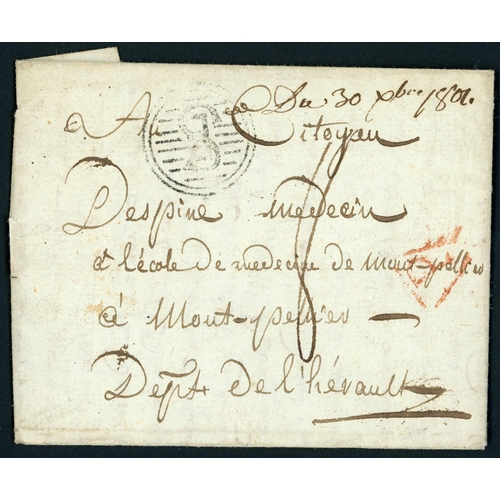 Du 30 xbre 1801.
Au Citoyen
Despine medecin
à l'école de medecine de mont-pellier
à Mont-pellier
Dept. de l'hérault